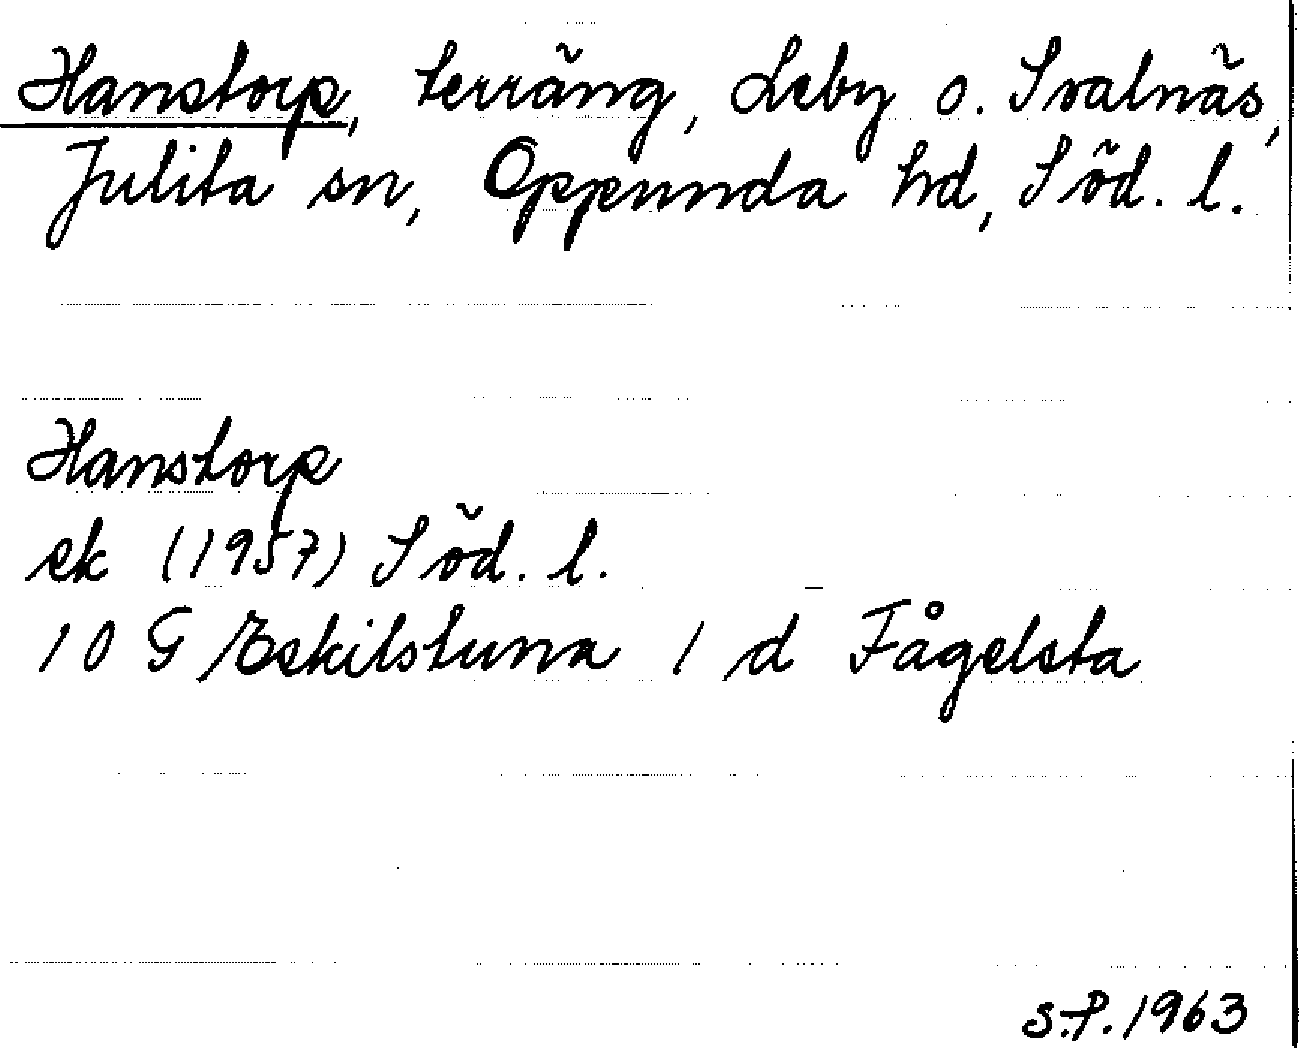 Hanstorp, terräng, Leby o. Svalnäs,
Julita sn, Oppunda hd, Söd. l.
Hanstorp
ek (1957) Söd. l.
10 G Eskilstuna 1 d Fågelsta
S.P. 1963